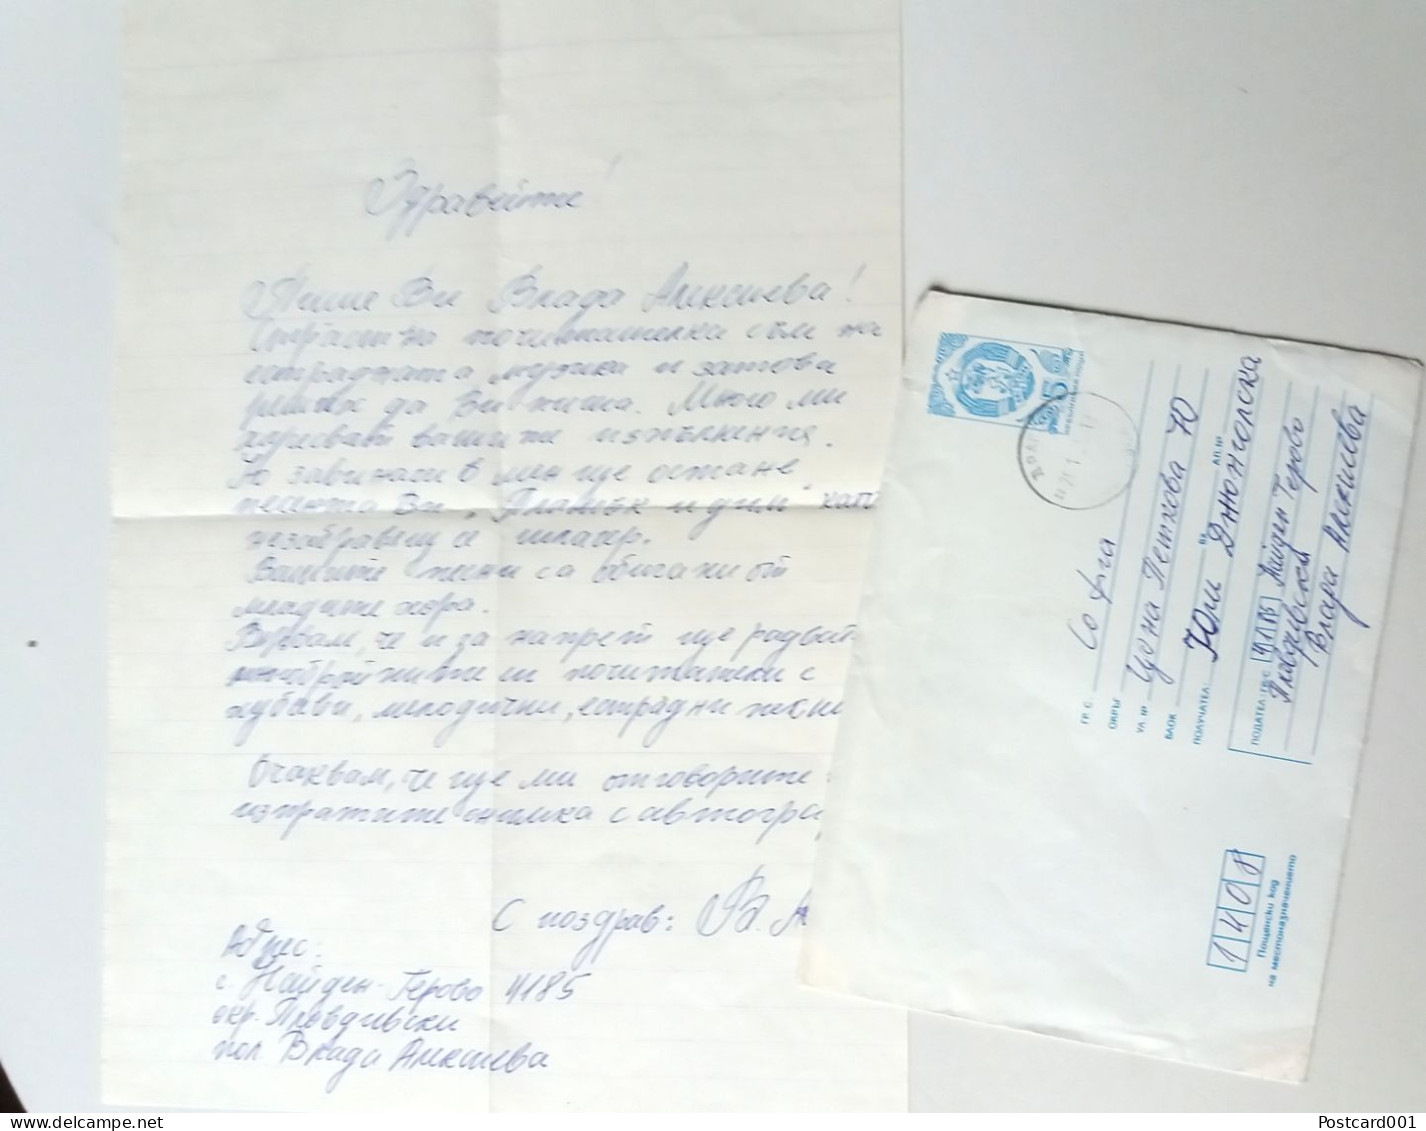 Здравейте!
Пише Ви Влада Алексиева!
Страстна почитателка съм на
естрадната музика и затова
реших да Ви пиша. Много ми
харесват вашите изпълнения.
Но завинаги в мен ще остане
песента Ви "Пламък и дим" като
незабравящ се шлагер.
Вашите песни са обичани от
младите хора.
Вярвам, че и за напред ще радвате
многобройните си почитатели с
хубави, мелодични, естрадни песни
Очаквам, че ще ми отговорите
изпратите снимка с автограф
С поздрав: Вл. Ал
Адрес:
с. Найден-Герово 4185
окр. Пловдивски
пол. Влада Алексиева
5
ГР. С. София
ОКРЪГ
УЛ. № Цона Петкова 70
БЛОК ВХ. АП. №
ПОЛУЧАТЕЛ: Юри Джонголска
ПОДАТЕЛ ГР./С. 4185 Найден Герово
Пловдивски
Влада Алексиева
1408
Пощенски код
на местоназначението
Postcard001